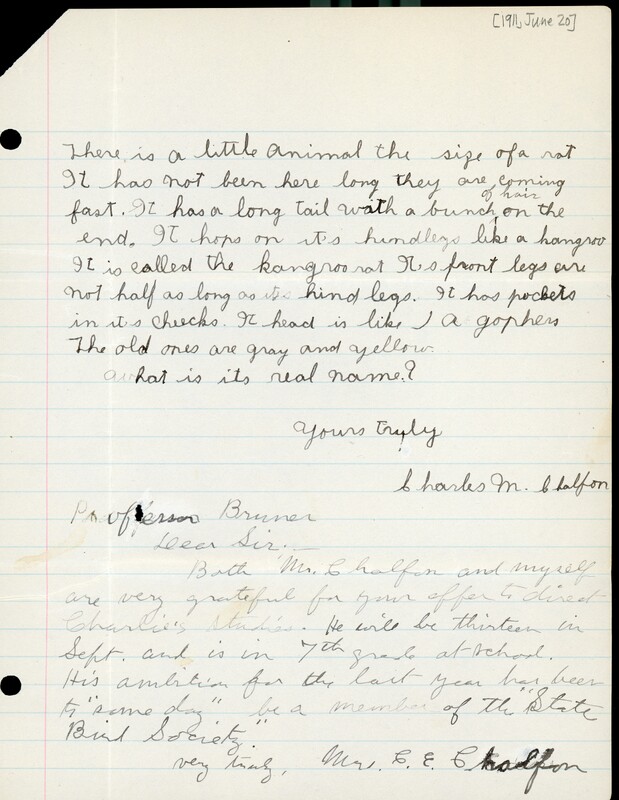 [1911, June 20]
There is a little animal the size of a rat
It has not been here long they are coming
fast. It has a long tail with a bunch of hair on the
end. It hops on its hindlegs like a kangroo
It is called the kangroo rat Its front legs are
not half as long as its hind legs. It has pockets
in its cheeks. It head is like a gophers
The old ones are gray and yellow.
what is its real name?
Yours truly
Charles M. Chalfon
Professor Bruner
Dear Sir:—
Both Mr. Chalfon and myself
are very grateful for your offer to direct
Charlie's studies. He will be thirteen in
Sept. and is in 7th grade at school.
His ambition for the last year has been
to "some day" be a member of the "State
Bird Society."
very truly, Mrs. C. E. Chalfon